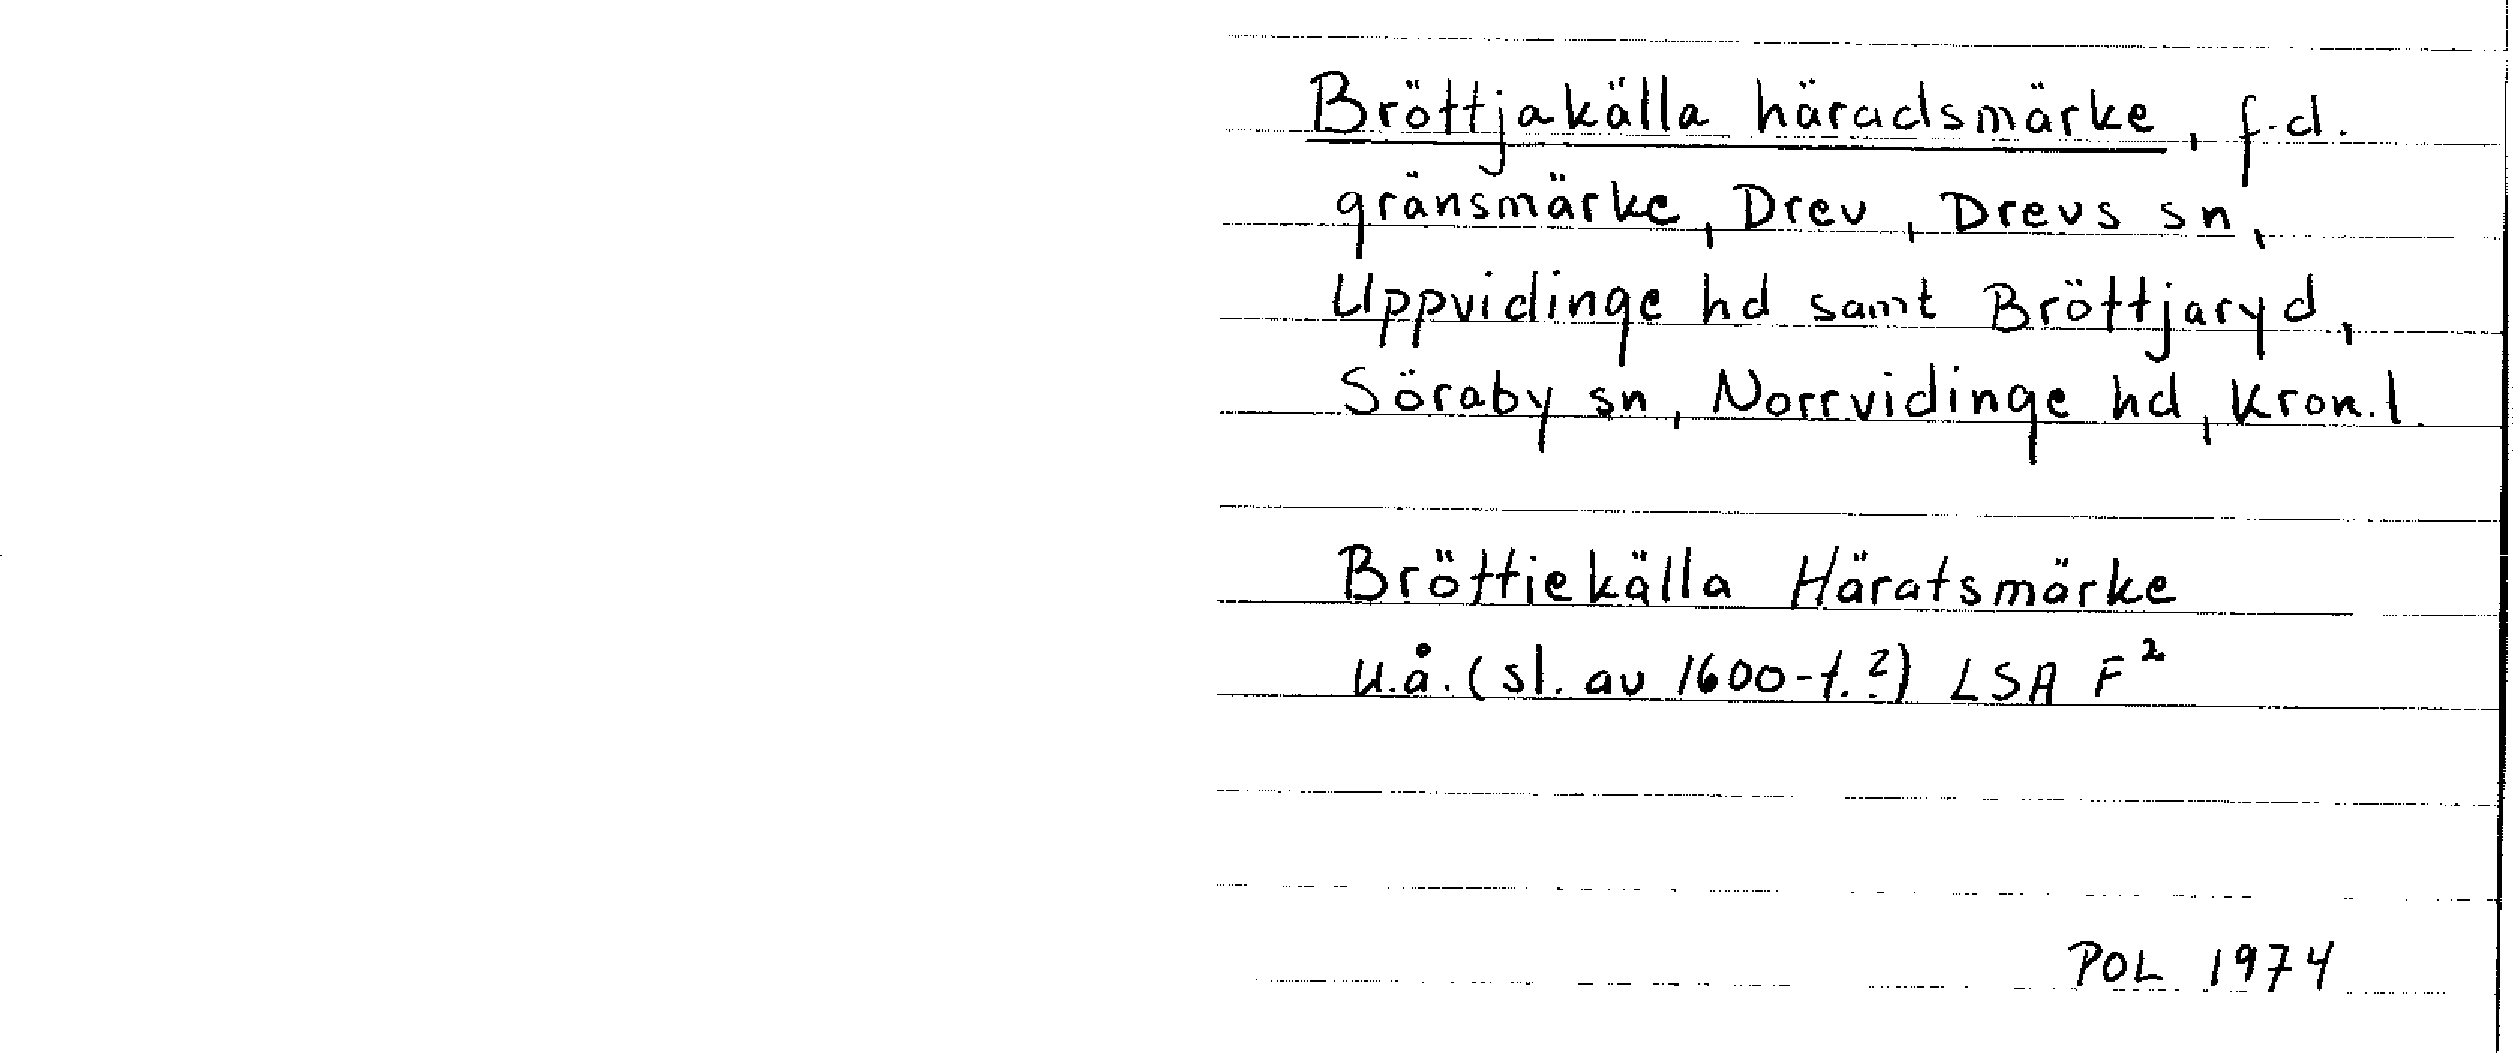 Bröttjakälla häradsmärke, f.d.
gränsmärke, Drev, Drevs sn,
Uppvidinge hd samt Bröttjaryd,
Söraby sn, Norrvidinge hd, Kron.l.
Bröttiekälla Häratsmärke
u.å. (sl. av 1600-t.?) LSA F²
POL 1974